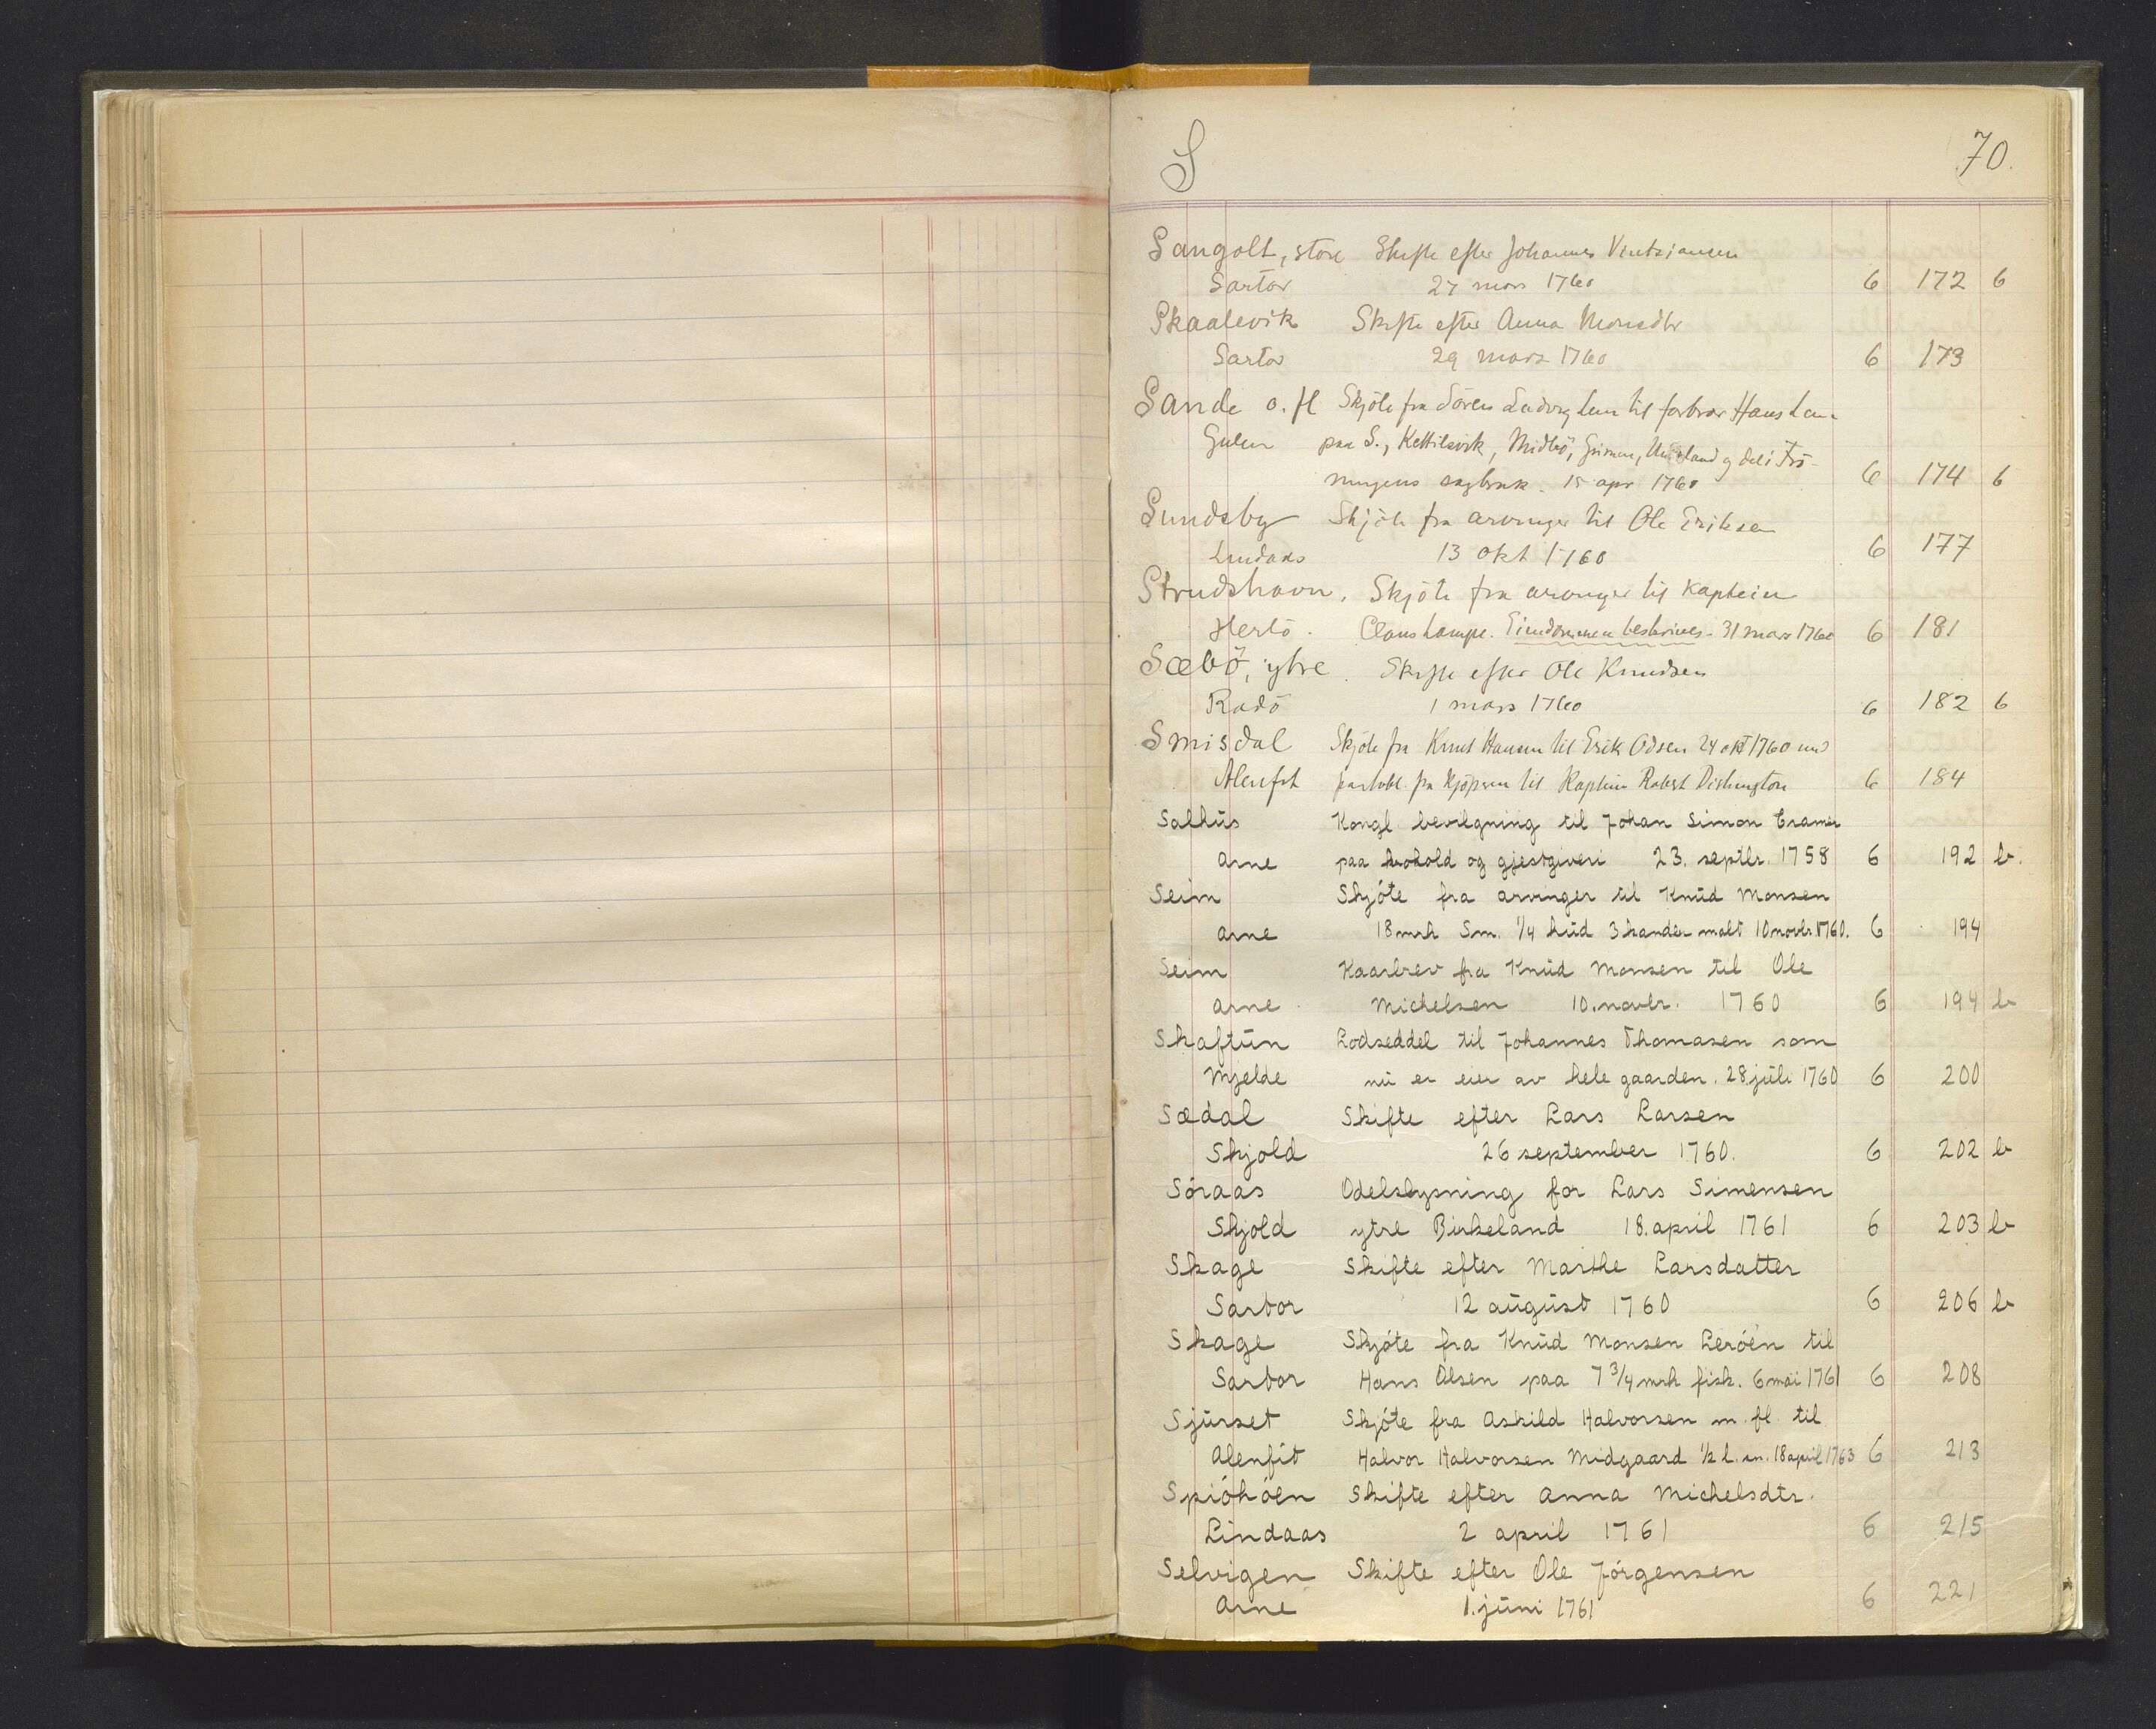 S 70.
Sangolt, store Skifte efter Johannes Vintsiansen
Sartor 27 mars 1760 6 172 b
Skaalevik Skifte efter Anna Monsdtr
Sartor 29 mars 1760 6 173
Sande o. fl Skjöte fra Sören Ludvig Lem til farbror Hans Lem
Gulen paa S., Kettilsvik, Midbö, Grimen, og del i Frö-
mugens sagbruk. 15 apr 1760 6 174 b
Sundsby Skjöte fra arvinger til Ole Eriksen
Lindaas 13 okt 1760 6 177
Strudshavn. Skjöte fra arvinger til Kaptein
Herlö. Claus Lampe. Eiendommen beskrives. 31 mars 1760 6 181
Sæbö, ytre. Skifte efter Ole Knudsen
Radö 1 mars 1760 6 182 b
Smisdal Skjöte fra Knut Hansen til Erik Odsen 24 okt 1760 med
Alenfit pantobl. fra kjöperen til Kaptein Robert Dishington 6 184
Salhus Kongl. bevilgning til Johan Simon Cramer
Arne paa krohold og gjestgiveri 23. septbr. 1758 6 192 b.
Seim Skjöte fra arvinger til Knud Monsen
Arne 18 mrk Sm. 1/4 hud 3 kander malt 10 novbr. 1760. 6 194
Seim Kaarbrev fra Knud Monsen til Ole
Arne Michelsen 10. novbr. 1760 6 194 b
Skaftun Lodseddel til Johannes Thomasen som
Mjelde nu er eier av hele gaarden. 28 juli 1760 6 200
Sædal Skifte efter Lars Larsen
Skjold 26 september 1760. 6 202 b
Söraas Odelslysning for Lars Simensen
Skjold ytre Birkeland 18. april 1761 6 203 b
Skage Skifte efter Marthe Larsdatter
Sartor 12 august 1760 6 206 b
Skage Skjöte fra Knud Monsen Leröen til
Sartor Hans Olsen paa 7 3/4 mrk fisk. 6 mai 1761 6 208
Sjurset Skjöte fra Askild Halvorsen m. fl. til
Alenfit Halvor Halvorsen Midgaard 1/2 l. sm. 18 april 1763 6 213
Spjöhöen Skifte efter Anna Michelsdtr.
Lindaas 2 april 1761 6 215
Selvigen Skifte efter Ole Jörgensen
Arne 1. juni 1761 6 221